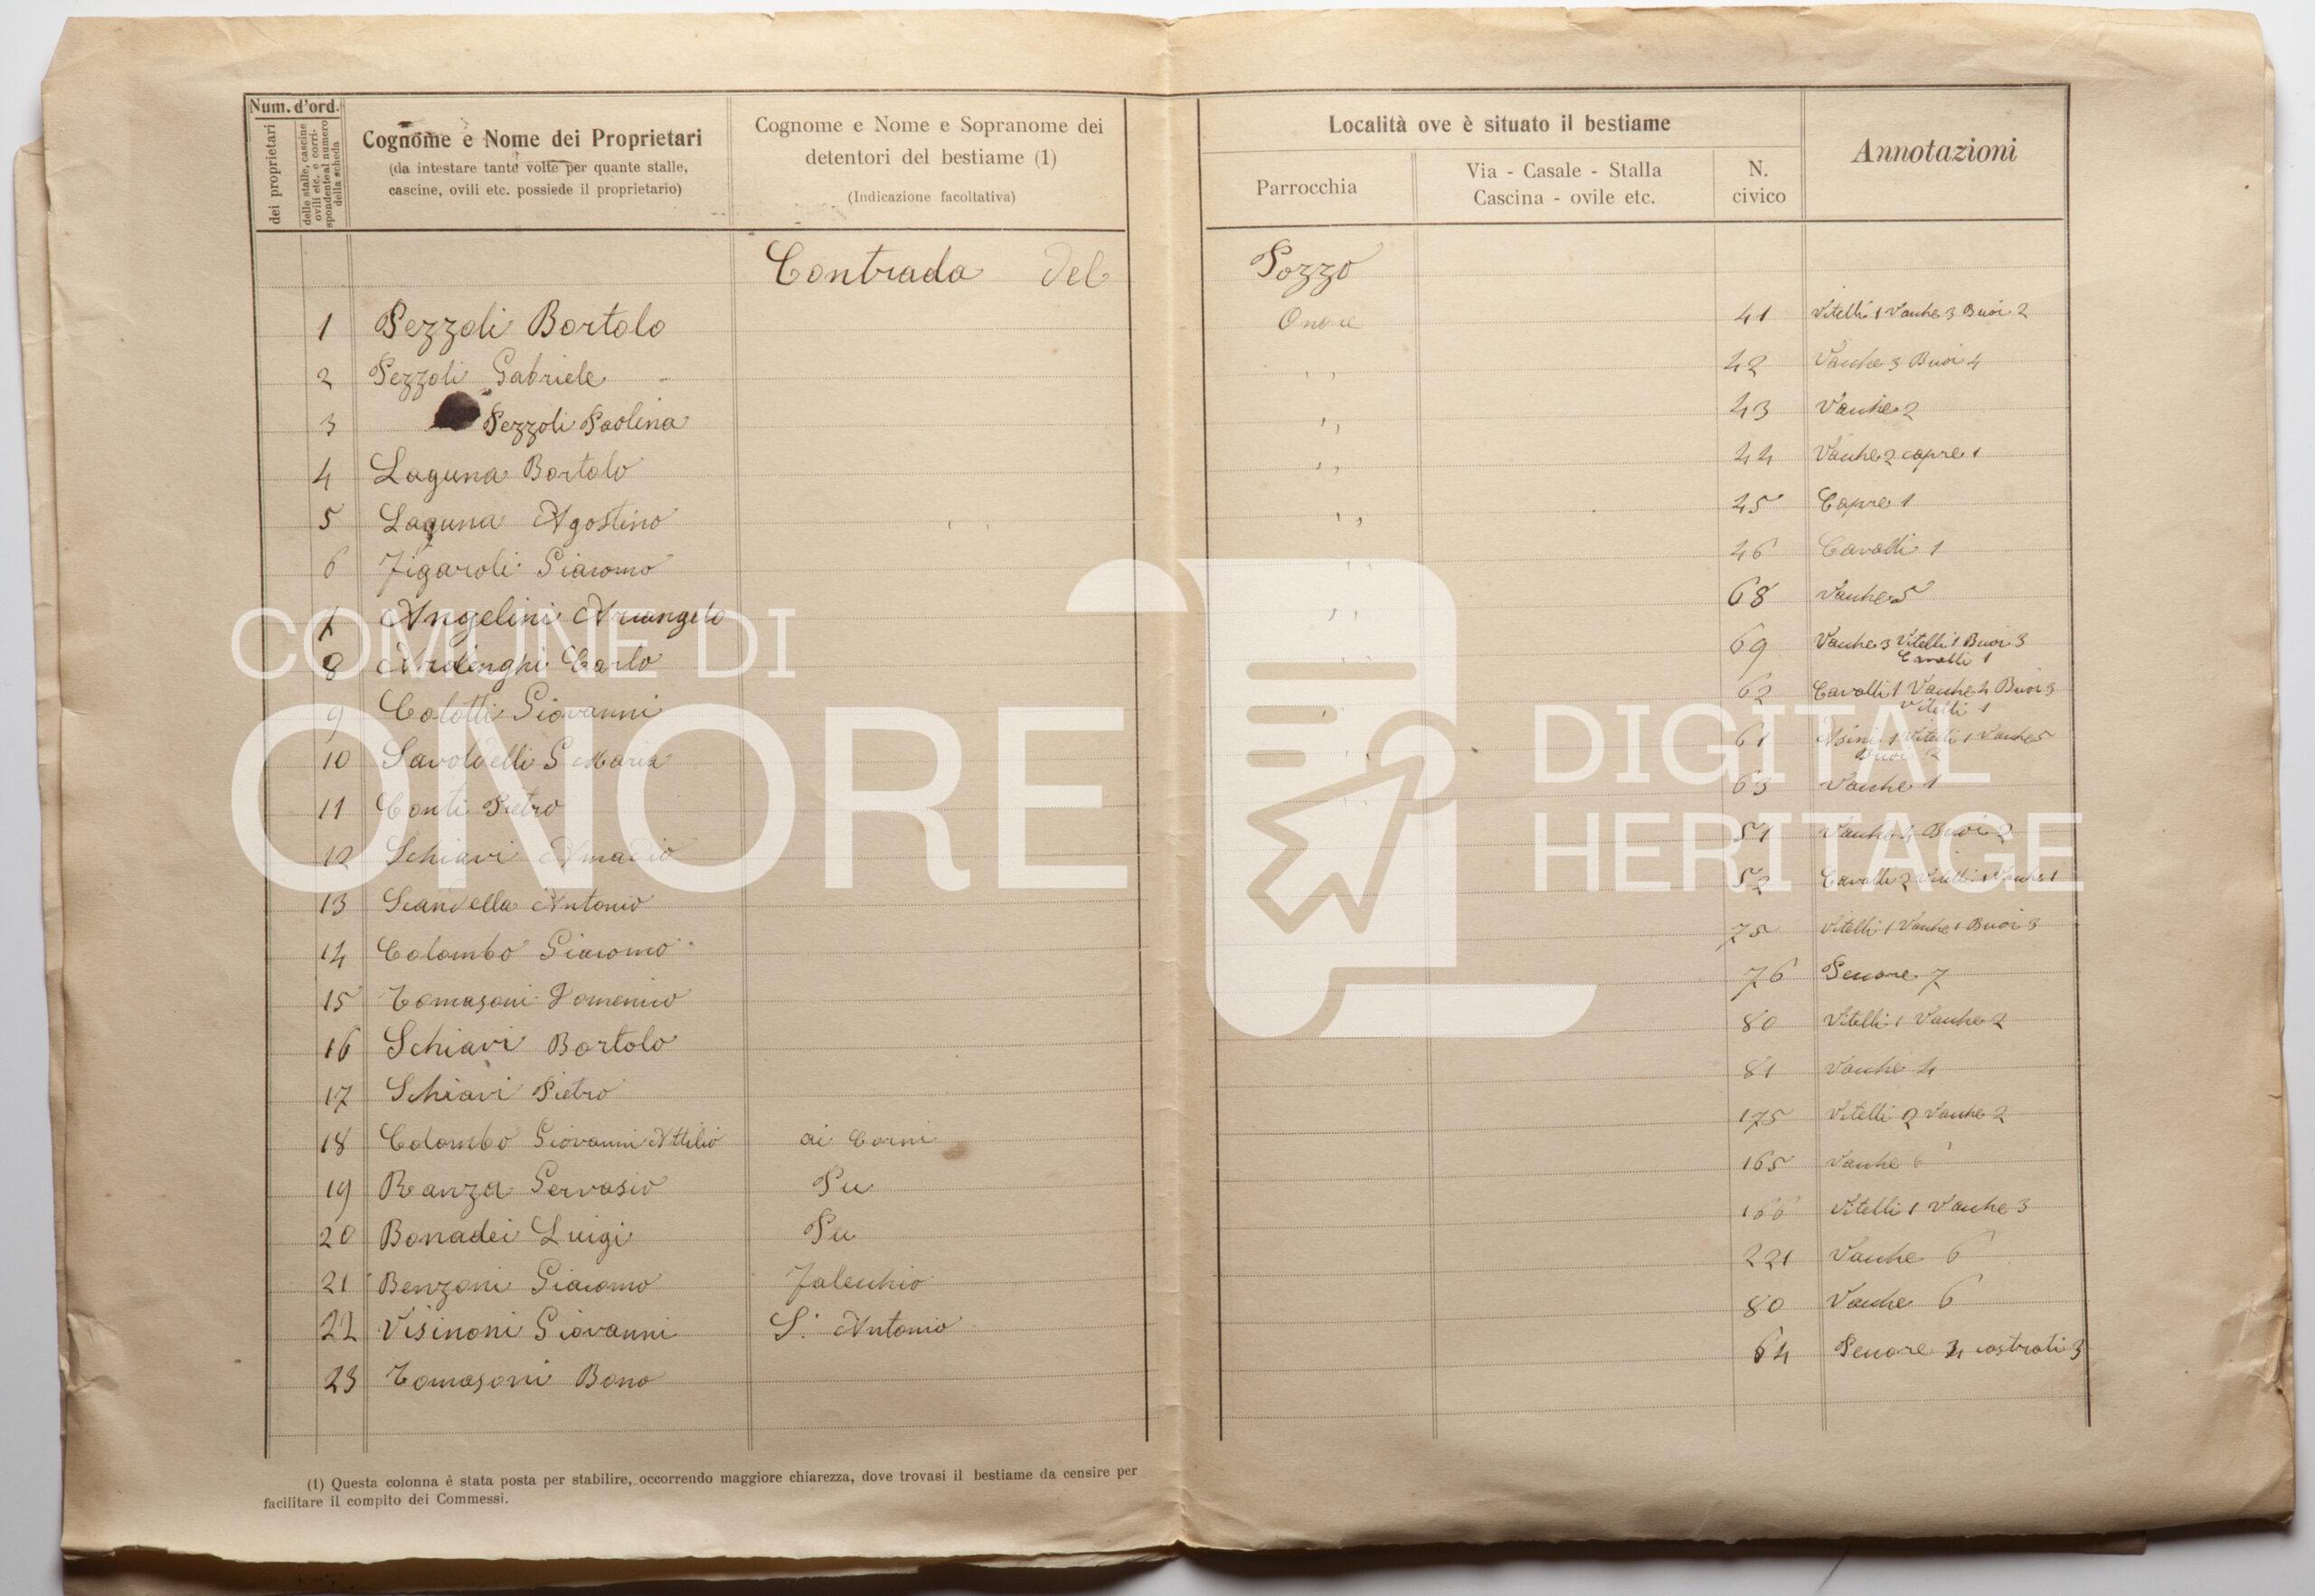 Num. d'ord.
dei proprietari
delle stalle, cascine ovili etc. e corrispondente al numero della scheda
Cognome e Nome dei Proprietari
(da intestare tante volte per quante stalle,
cascine, ovili etc. possiede il proprietario)
Cognome e Nome e Sopranome dei
detentori del bestiame (1)
(Indicazione facoltativa)
Località ove è situato il bestiame
Parrocchia
Via - Casale - Stalla
Cascina - ovile etc.
N.
civico
Annotazioni
Contrada del Pozzo
1 Pezzoli Bortolo Onore 41 Vitelli 1 Vacche 3 Buoi 2
2 Pezzoli Gabriele ,, 42 Vacche 3 Buoi 4
3 Pezzoli Paolina ,, 43 Vacche 2
4 Laguna Bortolo ,, 44 Vacche 2 capre 1
5 Laguna Agostino ,, 45 Capre 1
6 Figaroli Giacomo ,, 46 Cavalli 1
7 Angelini Arcangelo ,, 68 Vacche 5
8 Ardenghi Carlo 69 Vacche 3 Vitelli 1 Buoi 3
Cavalli 1
9 Colotti Giovanni 62 Cavalli 1 Vacche 4 Buoi 3
Vitelli 1
10 Savoldelli G Maria 61 Asini 1 Vitelli 1 Vacche 5
Buoi 2
11 Conti Pietro 63 Vacche 1
12 Schiavi Amadio 51 Vacche 4 Buoi 2
13 Scandella Antonio 52 Cavalli 2 Vitelli 1 Vacche 1
14 Colombo Giacomo 75 Vitelli 1 Vacche 1 Buoi 3
15 Tomasoni Domenico 76 Pecore 7
16 Schiavi Bortolo 80 Vitelli 1 Vacche 2
17 Schiavi Pietro 81 Vacche 4
18 Colombo Giovanni Attilio ai Corni 175 Vitelli 2 Vacche 2
19 Ranza Gervasio Pu 165 Vacche 6
20 Bonadei Luigi Pu 166 Vitelli 1 Vacche 3
21 Benzoni Giacomo Falecchio 221 Vacche 6
22 Visinoni Giovanni S. Antonio 80 Vacche 6
23 Tomasoni Bono 64 Pecore 4 castrati 3
(1) Questa colonna è stata posta per stabilire, occorrendo maggiore chiarezza, dove trovasi il bestiame da censire per
facilitare il compito dei Commessi.
COMUNE DI
ONORE
DIGITAL
HERITAGE